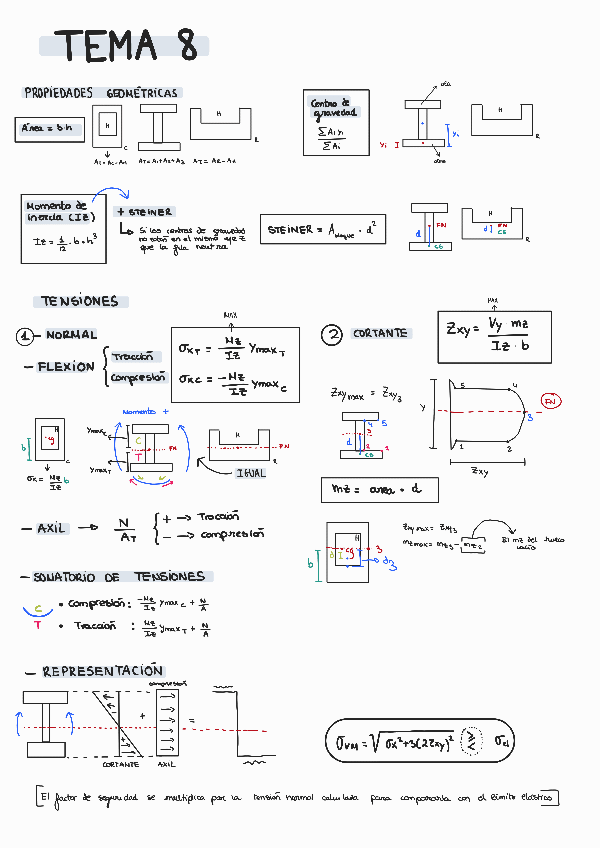 TEMA 8
PROPIEDADES GEOMÉTRICAS
Área = b·h
H
C
H
R
AT = AC - AH
AT = A1 + A2 + A3
AT = AR - AH
Centro de
gravedad
ΣAi yi
ΣAi
ala
yi
yi
alma
H
R
Momento de
inercia (Iz)
Iz = 1/12 · b · h³
+ STEINER
Si los centros de gravedad
no están en el mismo eje z
que la fila neutra
STEINER = Abloque · d²
d
FN
CG
H
d
FN
CG
R
TENSIONES
1 - NORMAL
- FLEXIÓN
Tracción
Compresión
MAX
σxT = Mz/Iz ymaxT
σxC = -Mz/Iz ymaxC
2 CORTANTE
MAX
Zxy = Vy · mz / Iz · b
Zxymax = Zxy3
Momento +
b
H
g
C
σx = Mz/Iz b
ymaxC
ymaxT
C
T
FN
H
FN
IGUAL
4 5
3
d
2 1
CG
y
5
4
3
2
1
FN
Zxy
mz = area · d
- AXIL → N/AT
+ → Tracción
- → compresión
b
H
d
g
3
d3
Zxymax = Zxy3
mzmax = mz3 - mz2
El mz del hueco
vacío
- SUMATORIO DE TENSIONES
C • Compresión: -Mz/Iz ymaxC + N/A
T • Tracción : Mz/Iz ymaxT + N/A
- REPRESENTACIÓN
compresión
-
+
+
=
CORTANTE
AXIL
σVM = √σx² + 3(2Zxy)² ≥ ≤ σel
El factor de seguridad se multiplica por la tensión normal calculada para compararla con el límite elástico